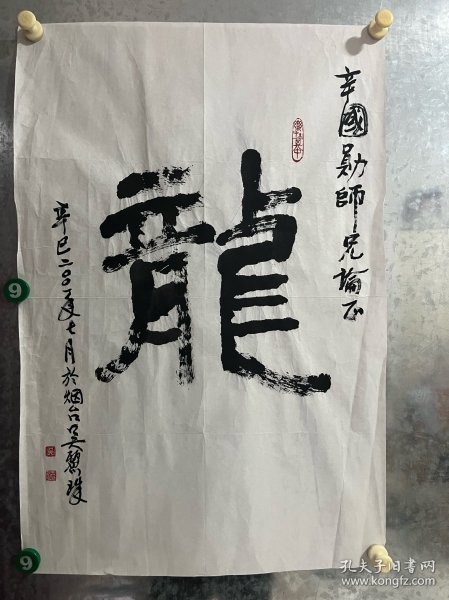 辛國勛師兄論正
龍
辛巳二〇〇一年七月於烟台吴翳珠
9
9
孔夫子旧书网
www.kongfz.com